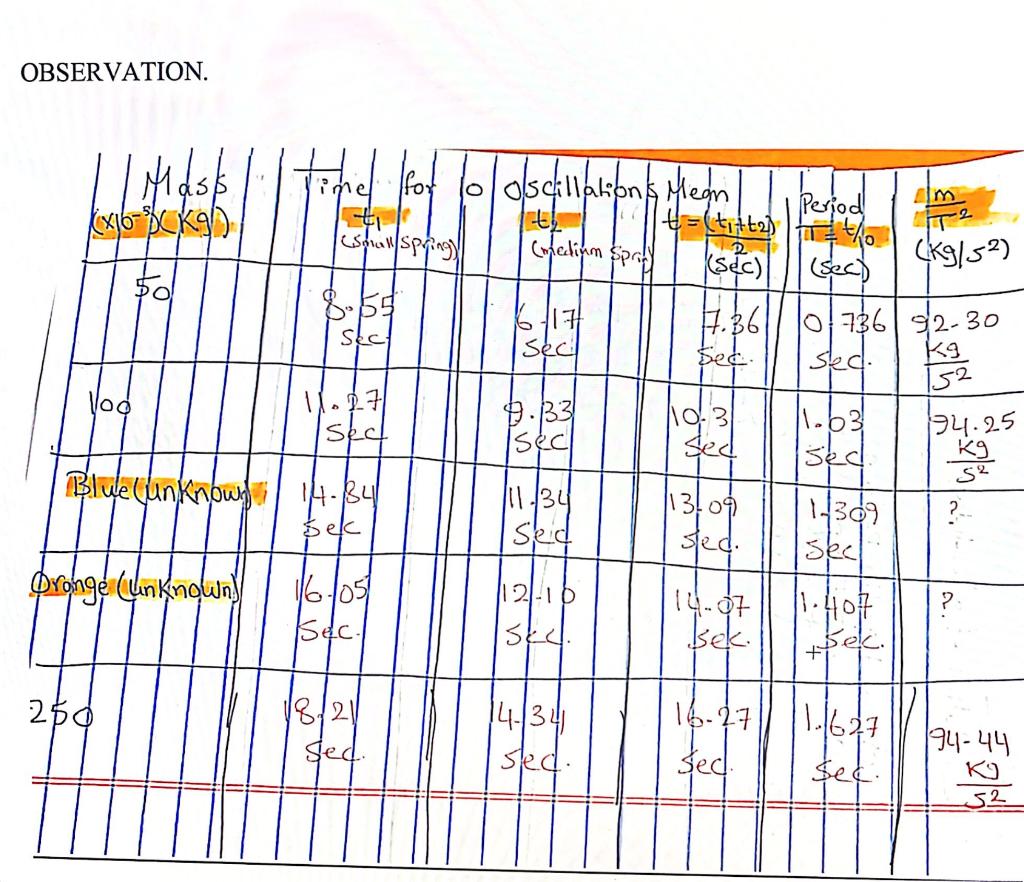 OBSERVATION.
Mass
(x10⁻³)(Kg)
Time for 10 Oscillations
t₁
(small spring)
t₂
(medium Sprin)
Mean
t = (t₁+t₂)
2
(Sec)
Period
T = t/10
(Sec)
m
T²
(Kg/s²)
50
8.55
Sec
6.17
Sec
7.36
Sec.
0.736
Sec.
92.30
Kg
s²
100
11.27
Sec
9.33
Sec
10.3
Sec
1.03
Sec.
94.25
Kg
s²
Blue (unknown)
14.84
Sec
11.34
Sec
13.09
Sec.
1.309
Sec
?
Orange (unknown)
16.05
Sec.
12.10
Sec.
14.07
Sec.
1.407
+Sec.
?
250
18.21
Sec.
14.34
Sec.
16.27
Sec.
1.627
Sec.
94.44
Kg
s²